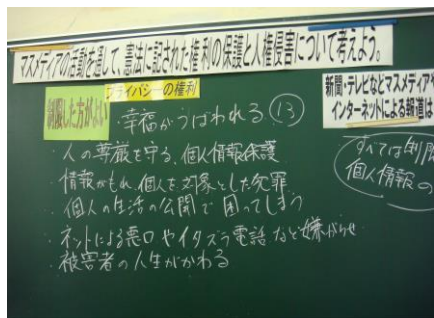 マスメディアの活動を通して、憲法に記された権利の保護と人権侵害について考えよう。
制限した方がよい
プライバシーの権利
新聞・テレビなどマスメディアや
インターネットによる報道は
・幸福がうばわれる ⑬
・人の尊厳を守る、個人情報保護
・情報がもれ、個人を対象とした犯罪
・個人の生活の公開で困ってしまう
・ネットによる悪口やイタズラ電話など嫌がらせ
・被害者の人生がかわる
すべては制限
個人情報の